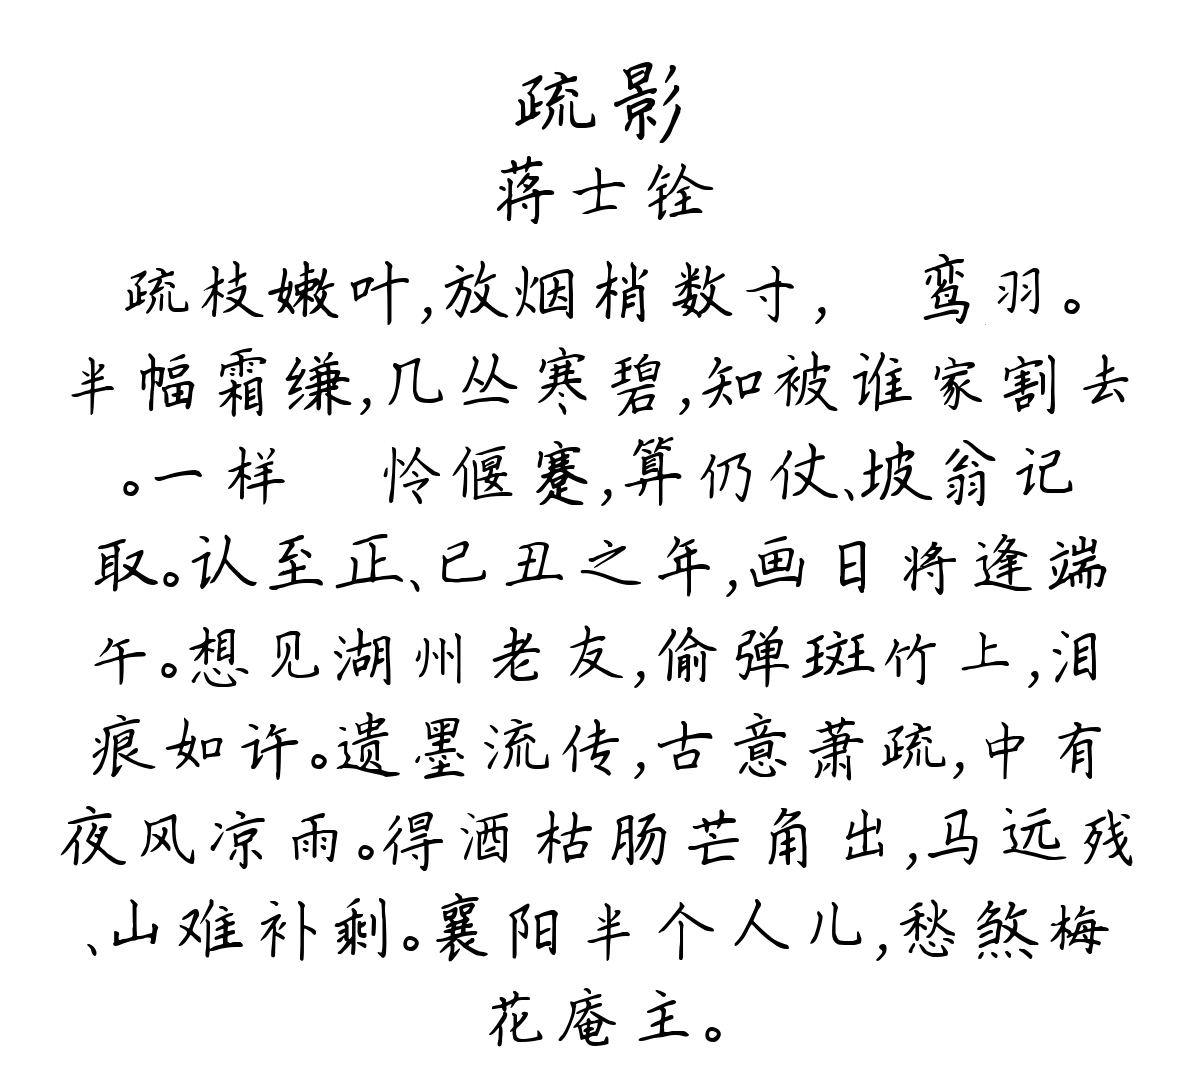 疏影
蒋士铨
疏枝嫩叶,放烟梢数寸, 鸾羽。
半幅霜缣,几丛寒碧,知被谁家割去
。一样 怜偃蹇,算仍仗、坡翁记
取。认至正、已丑之年,画日将逢端
午。想见湖州老友,偷弹斑竹上,泪
痕如许。遗墨流传,古意萧疏,中有
夜风凉雨。得酒枯肠芒角出,马远残
、山难补剩。襄阳半个人儿,愁煞梅
花庵主。